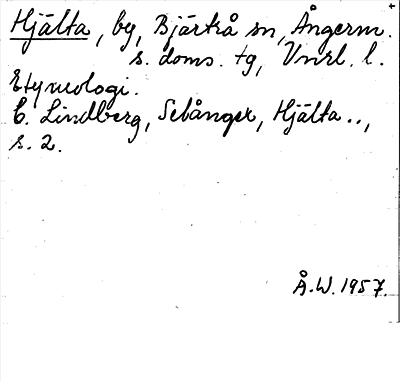 Hjälta, by, Bjärtrå sn, Ångerm.
s. doms. tg, Vnrl. l.
Etymologi.
C. Lindberg, Setånger, Hjälta..,
s. 2.
Å.W. 1957.